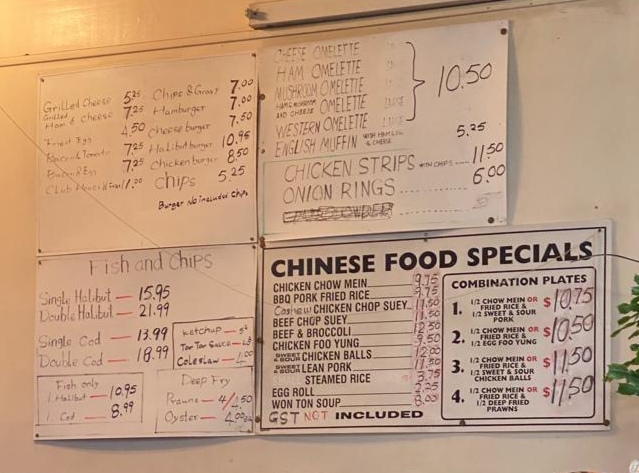 Grilled Cheese 5.25
Grilled Ham & Cheese 7.25
Fried Egg 4.50
Bacon & Tomato 7.25
Bacon & Egg 7.25
Club House
Chips & Gravy 7.00
Hamburger 7.00
Cheese burger 7.50
Halibut burger 10.95
Chicken burger 8.50
Chips 5.25
Burger No included Chips
CHEESE OMELETTE
HAM OMELETTE
MUSHROOM OMELETTE
HAM & MUSHROOM AND CHEESE OMELETTE
WESTERN OMELETTE
10.50
ENGLISH MUFFIN WITH HAM & CHEESE 5.25
CHICKEN STRIPS WITH CHIPS 11.50
ONION RINGS 6.00
Fish and Chips
Single Halibut — 15.95
Double Halibut — 21.99
Single Cod — 13.99
Double Cod — 18.99
Ketchup
Tar Tar Sauce
Coleslaw — 1.00
Fish only
1 Halibut — 10.95
1 Cod — 8.99
Deep Fry
Prawns — 4/
Oyster —
CHINESE FOOD SPECIALS
CHICKEN CHOW MEIN 9.75
BBQ PORK FRIED RICE 9.75
Cashew CHICKEN CHOP SUEY 11.50
BEEF CHOP SUEY 11.50
BEEF & BROCCOLI 12.50
CHICKEN FOO YUNG 9.50
SWEET & SOUR CHICKEN BALLS 12.00
SWEET & SOUR LEAN PORK 11.50
STEAMED RICE 3.75
EGG ROLL 2.25
WON TON SOUP 8.00
GST NOT INCLUDED
COMBINATION PLATES
1. 1/2 CHOW MEIN OR FRIED RICE & 1/2 SWEET & SOUR PORK $10.75
2. 1/2 CHOW MEIN OR FRIED RICE & 1/2 EGG FOO YUNG $10.50
3. 1/2 CHOW MEIN OR FRIED RICE & 1/2 SWEET & SOUR CHICKEN BALLS $11.50
4. 1/2 CHOW MEIN OR FRIED RICE & 1/2 DEEP FRIED PRAWNS $11.50